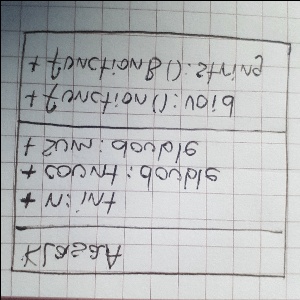 KlasaA
+ n: int
+ count: double
+ sum: double
+ function(): void
+ functionB(): string